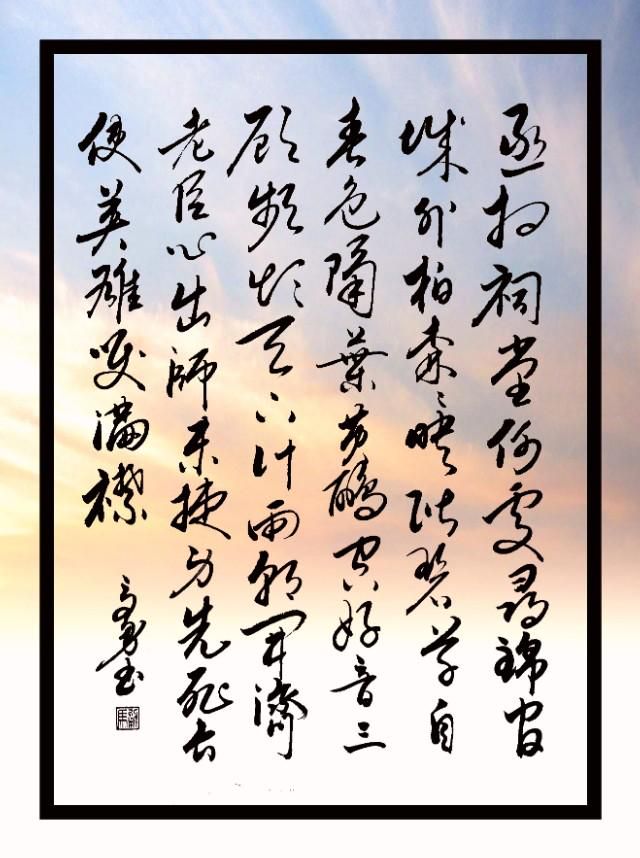 丞相祠堂何處尋錦官
城外柏森〻映階碧草自
春色隔葉黃鸝空好音三
顧頻煩天下計兩朝開濟
老臣心出師未捷身先死長
使英雄淚滿襟
高勇书